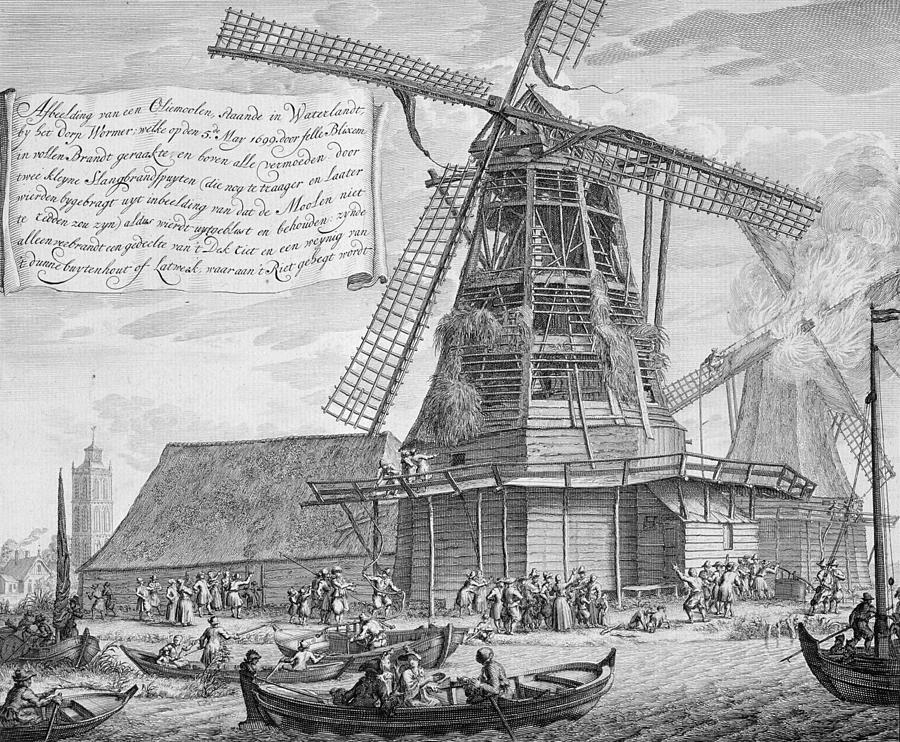 Afbeelding van een Oliemoolen, staande in Waterlandt,
by het Dorp Wormer; welke op den 5de May 1699. door felle Blixem
in vollen Brandt geraakte; en boven alle vermoeden door
twee kleyne Slangbrandspuyten (die nog te traager en Laater
wierden bygebragt uyt inbeelding van dat de Moolen niet
te redden zou zyn) aldus wierdt uytgeblust en behouden; zynde
alleen verbrandt een gedeelte van 't Dek Riet en een weynig van
't dunne buytenhout of Latwerk, waar aan 't Riet gehegt wordt